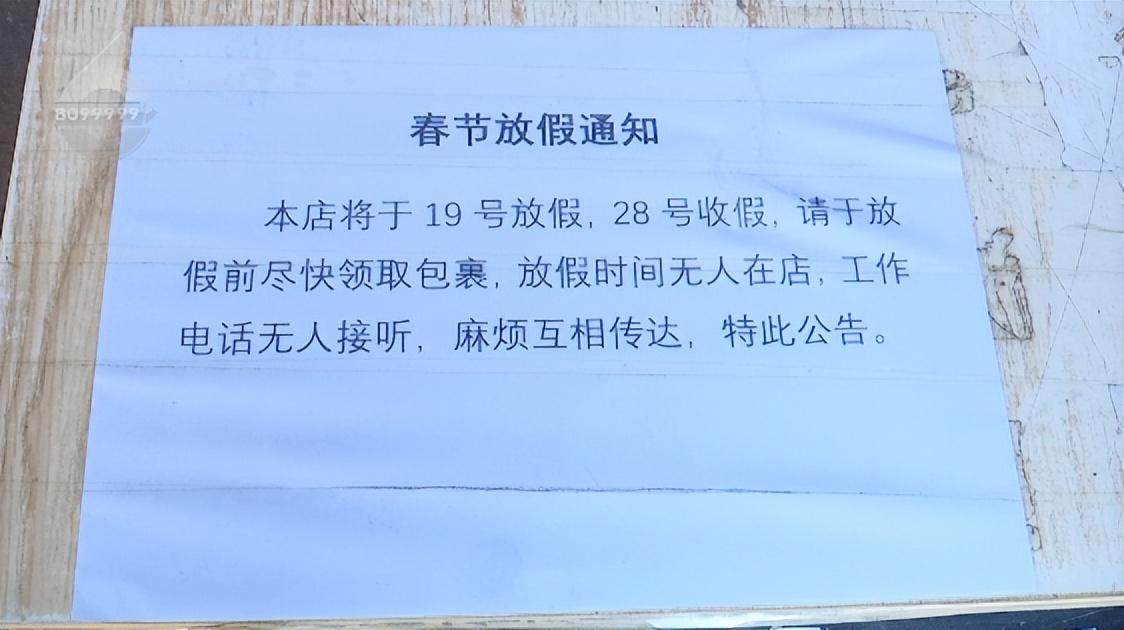 8099999
春节放假通知
本店将于 19 号放假, 28 号收假, 请于放
假前尽快领取包裹, 放假时间无人在店, 工作
电话无人接听, 麻烦互相传达, 特此公告。